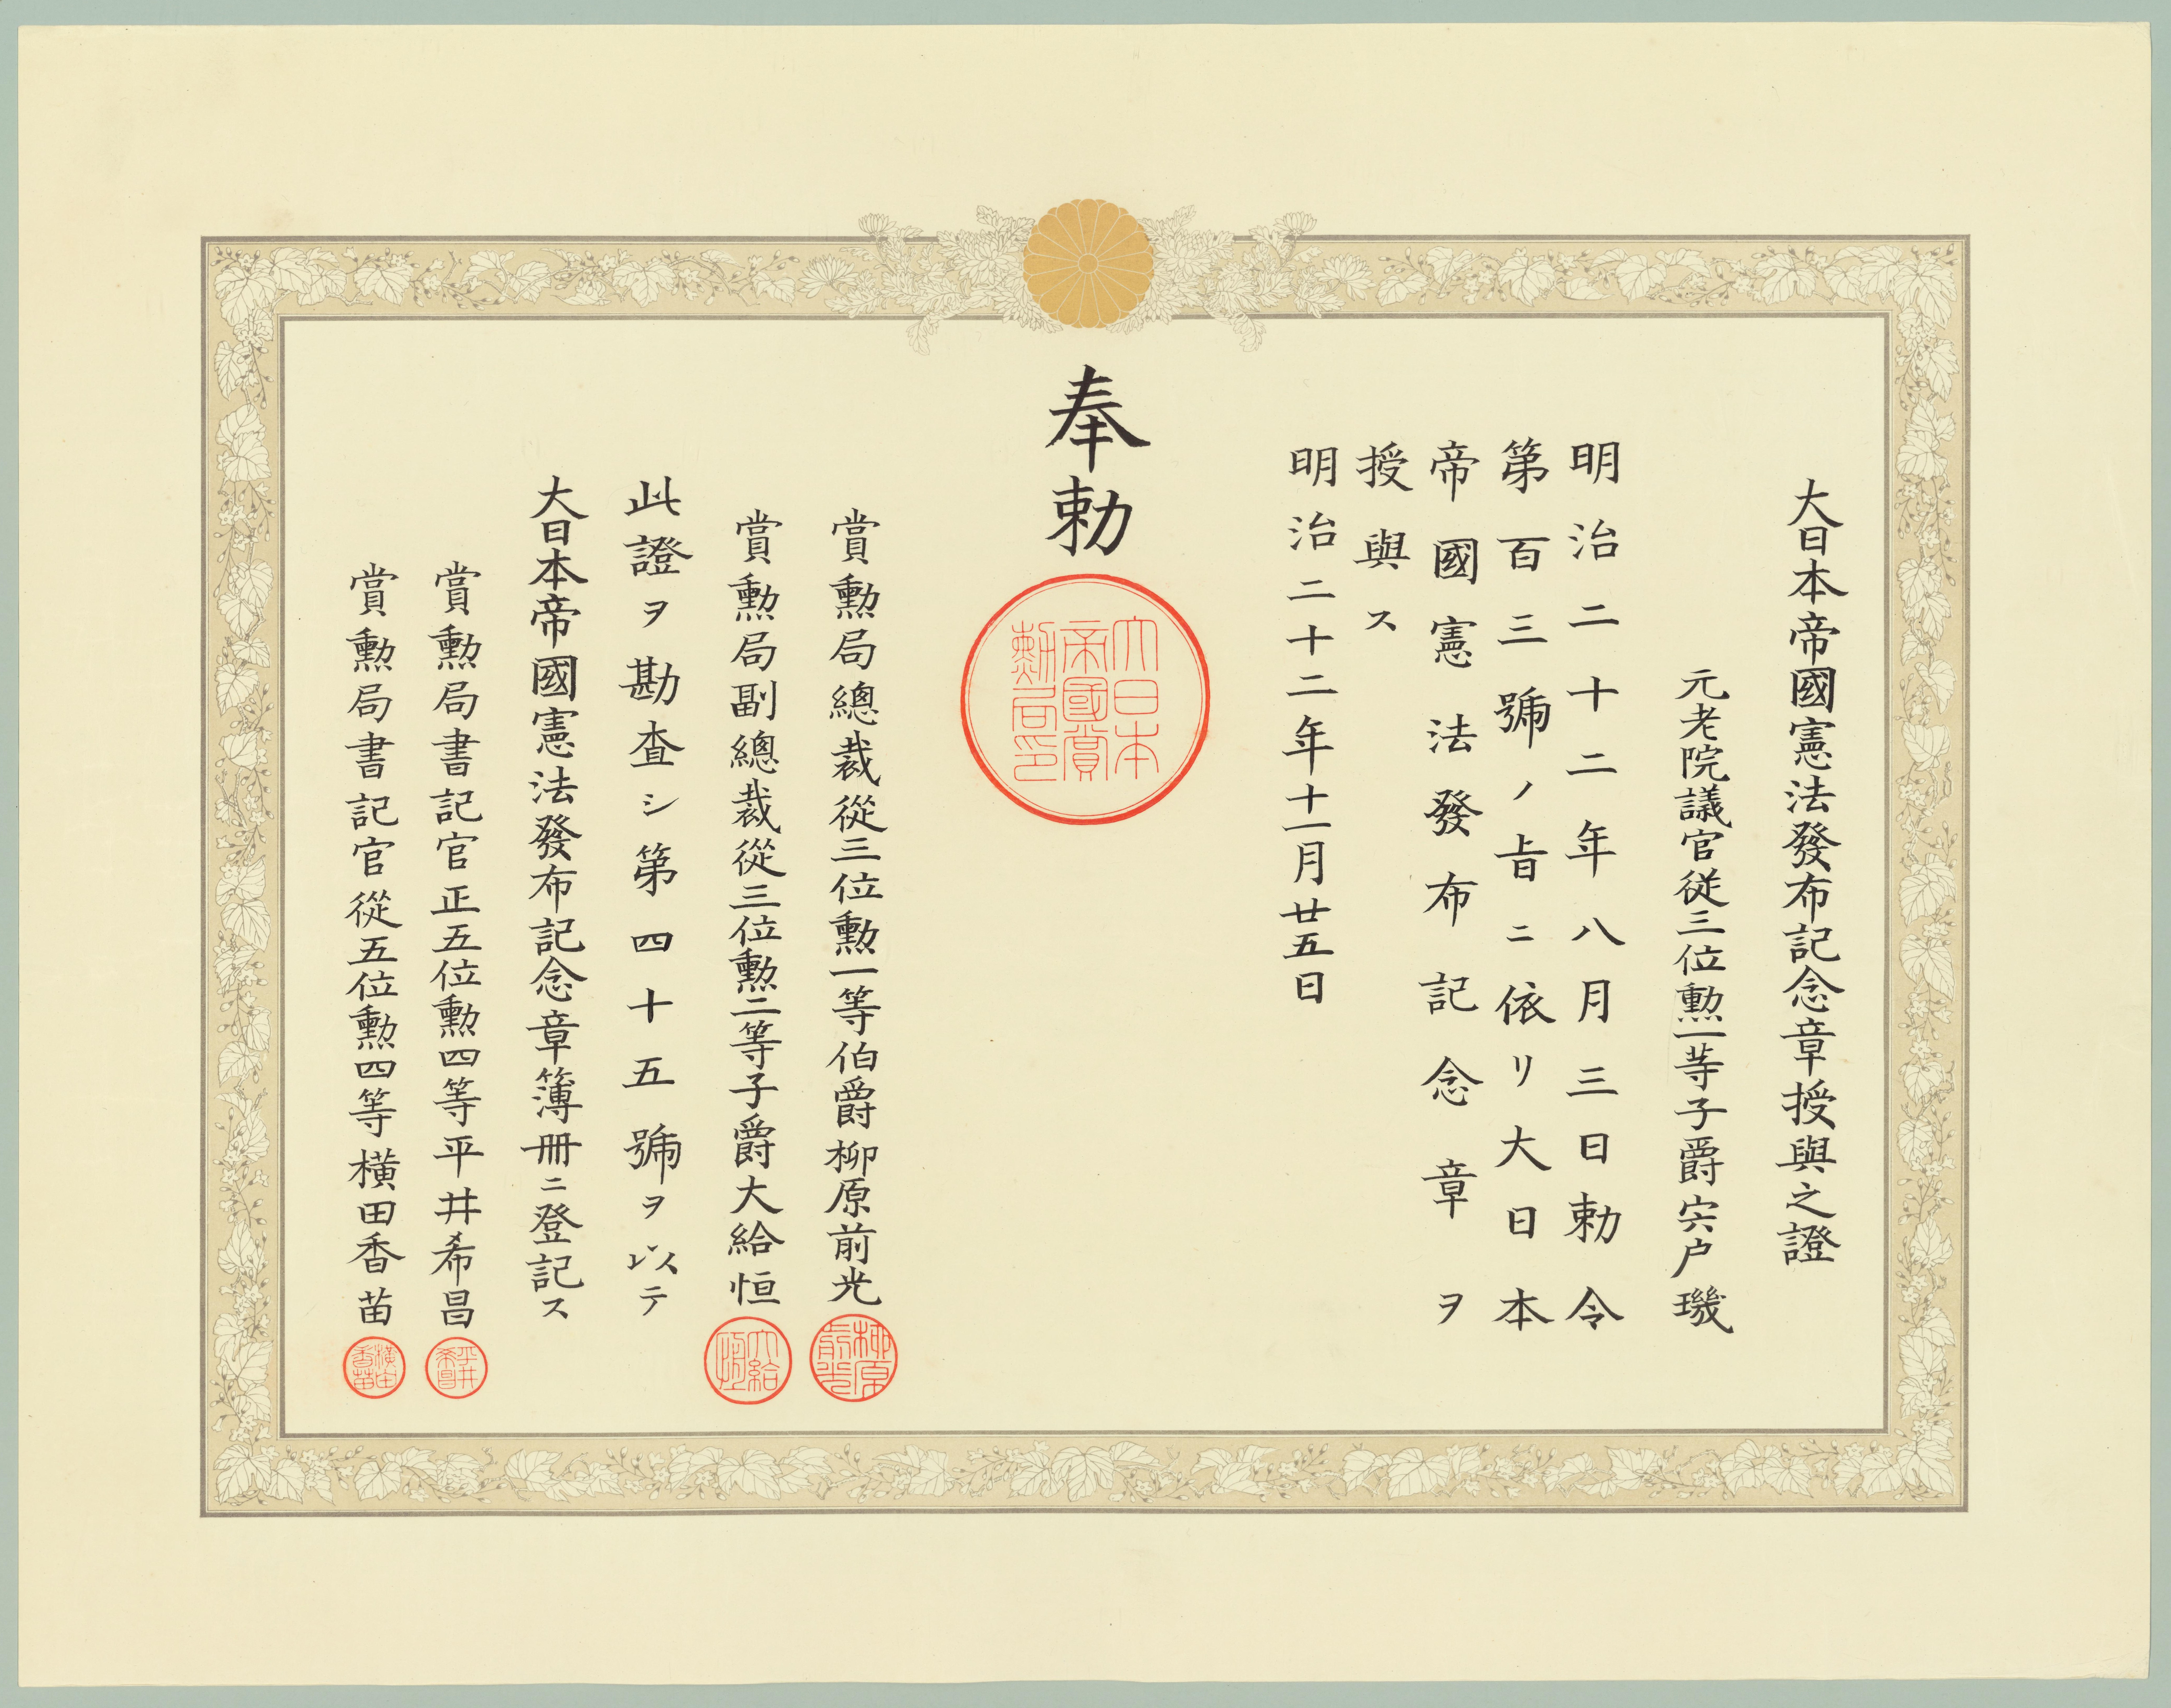 大日本帝國憲法發布記念章授與之證
元老院議官従三位勲一等子爵宍户璣
明治二十二年八月三日勅令
第百三號ノ旨ニ依リ大日本
帝國憲法發布記念章ヲ
授與ス
明治二十二年十一月廿五日
奉勅
大日本
帝國賞
勲局印
賞勲局總裁從三位勲一等伯爵柳原前光
柳原
前光
賞勲局副總裁從三位勲二等子爵大給恒
大給
恒
此證ヲ勘査シ第四十五號ヲ以テ
大日本帝國憲法發布記念章簿冊ニ登記ス
賞勲局書記官正五位勲四等平井希昌
平井
希昌
賞勲局書記官從五位勲四等横田香苗
横田
香苗